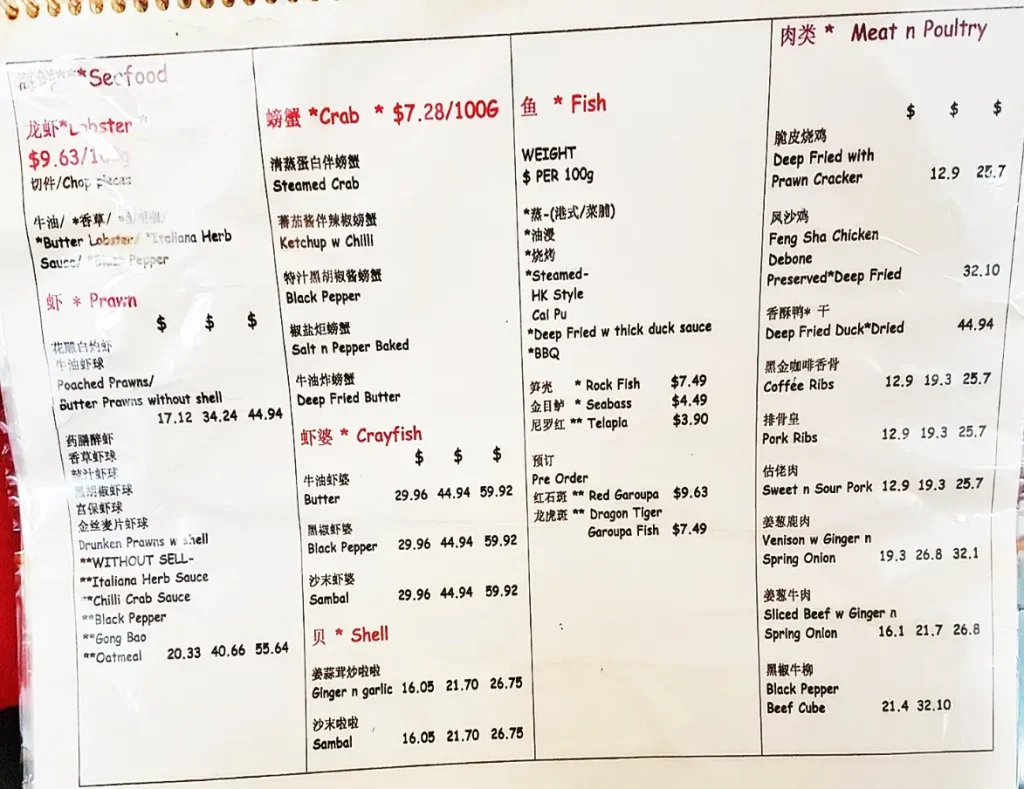 海鲜***Seafood
龙虾*Lobster *
$9.63/100g
切件/Chop pieces
牛油/ *香草/
*Butter Lobster/ *Italiana Herb
Sauce/ *Black Pepper
虾 * Prawn
$ $ $
花雕白灼虾
牛油虾球
Poached Prawns/
Butter Prawns without shell
17.12 34.24 44.94
药膳醉虾
香草虾球
辣汁虾球
黑胡椒虾球
宫保虾球
金丝麦片虾球
Drunken Prawns w shell
**WITHOUT SELL-
**Italiana Herb Sauce
**Chilli Crab Sauce
**Black Pepper
**Gong Bao
**Oatmeal 20.33 40.66 55.64
螃蟹 *Crab * $7.28/100G
清蒸蛋白伴螃蟹
Steamed Crab
蕃茄酱伴辣椒螃蟹
Ketchup w Chilli
特汁黑胡椒酱螃蟹
Black Pepper
椒盐炬螃蟹
Salt n Pepper Baked
牛油炸螃蟹
Deep Fried Butter
虾婆 * Crayfish
$ $ $
牛油虾婆
Butter 29.96 44.94 59.92
黑椒虾婆
Black Pepper 29.96 44.94 59.92
沙末虾婆
Sambal 29.96 44.94 59.92
贝 * Shell
姜蒜茸炒啦啦
Ginger n garlic 16.05 21.70 26.75
沙末啦啦
Sambal 16.05 21.70 26.75
鱼 * Fish
WEIGHT
$ PER 100g
*蒸-(港式/菜脯)
*油漫
*烧烤
*Steamed-
HK Style
Cai Pu
*Deep Fried w thick duck sauce
*BBQ
笋壳 * Rock Fish $7.49
金目鲈 * Seabass $4.49
尼罗红 ** Telapia $3.90
预订
Pre Order
红石斑 ** Red Garoupa $9.63
龙虎斑 ** Dragon Tiger
Garoupa Fish $7.49
肉类 * Meat n Poultry
$ $ $
脆皮烧鸡
Deep Fried with
Prawn Cracker 12.9 25.7
风沙鸡
Feng Sha Chicken
Debone
Preserved*Deep Fried 32.10
香酥鸭* 干
Deep Fried Duck*Dried 44.94
黑金咖啡香骨
Coffee Ribs 12.9 19.3 25.7
排骨皇
Pork Ribs 12.9 19.3 25.7
估佬肉
Sweet n Sour Pork 12.9 19.3 25.7
姜葱鹿肉
Venison w Ginger n
Spring Onion 19.3 26.8 32.1
姜葱牛肉
Sliced Beef w Ginger n
Spring Onion 16.1 21.7 26.8
黑椒牛柳
Black Pepper
Beef Cube 21.4 32.10